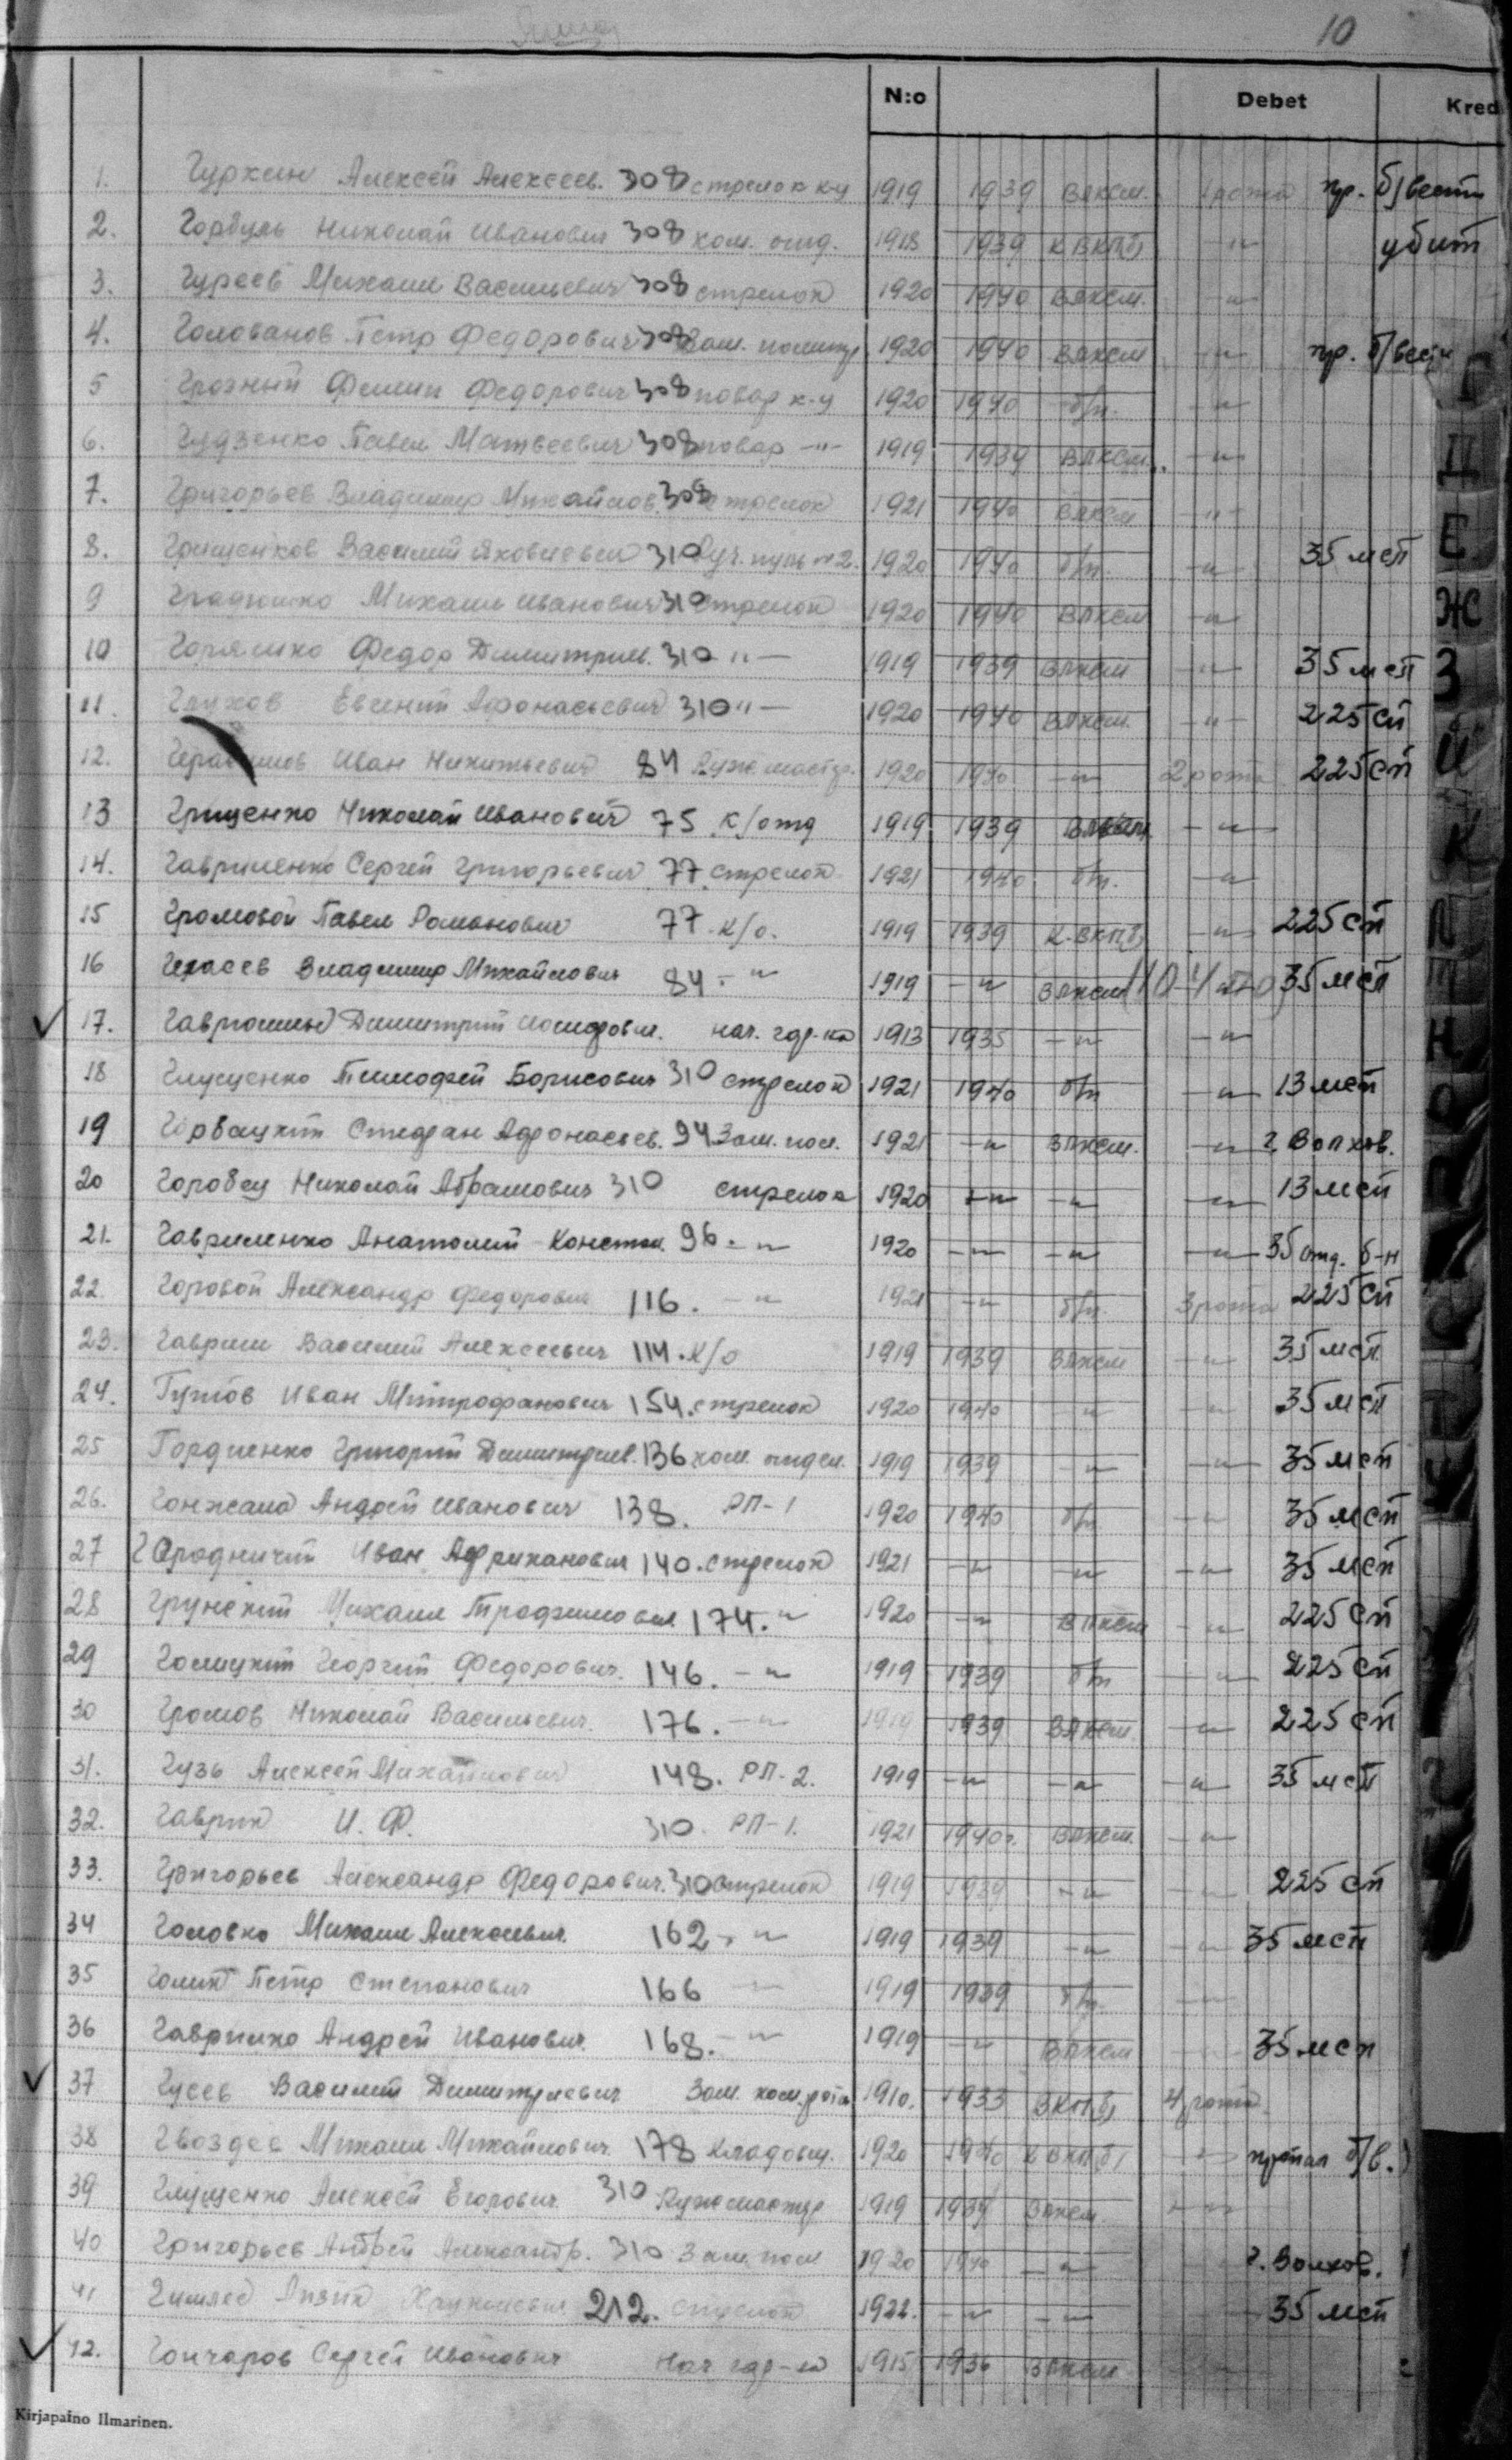 10
N:o Debet Kred
1. Гуркин Алексей Алексеев. 308 стрелок к-у 1919 1939 ВЛКСМ. 1 рота пр. б/вести
2. Горбуль Николай Иванович 308 ком. отд. 1918 1939 К ВКП(б) -"- убит
3. Гуреев Михаил Васильевич 308 стрелок 1920 1940 ВЛКСМ. -"-
4. Голованов Петр Федорович 308 Зам. политр 1920 1940 ВЛКСМ -"- пр. б/вести
5 Грозный Филип Федорович 308 повар к-у 1920 1940 б/п. -"-
6. Гудзенко Павел Матвеевич 308 повар -"- 1919 1939 ВЛКСМ. -"-
7. Григорьев Владимир Михайлов. 308 стрелок 1921 1940 ВЛКСМ -"-
8. Грищенков Василий Яковлевич 310 Руч. пул. №2. 1920 1940 б/п. -"- 35 мсп
9 Михаил Иванович 310 стрелок 1920 1940 ВЛКСМ -"-
10 Горяшко Федор Димитрии. 310 -"- 1919 1939 ВЛКСМ -"- 35 мсп
11. Глухов Евгений Афонасьевич 310 -"- 1920 1940 ВЛКСМ. -"- 225 сп
12. Герасимов Иван Никитьевич 84 Руж. мастер. 1920 1940 -"- 2 рота 225 сп
13 Грищенко Николай Иванович 75 к/отд 1919 1939 ВЛКСМ -"-
14. Гавриленко Сергей Григорьевич 77. стрелок 1921 1940 б/п. -"-
15 Громовой Павел Романович 77. к/о. 1919 1939 К. ВКП(б) -"- 225 сп
16 Владимир Михайлович 84. -"- 1919 -"- ВЛКСМ 35 мсп
17. Гаврюшин Димитрий Иосифович. нач. гар-на 1913 1935 -"- -"-
18 Глущенко Тимофей Борисович 310 стрелок 1921 1940 б/п -"- 13 мсп
19 Горвацкий Стефан Афонасьев. 94 Зам. пол. 1921 -"- ВЛКСМ. -"- г. Волхов.
20 Горовец Николай Абрамович 310 стрелок 1920 -"- -"- -"- 13 мсп
21. Гавриленко Анатолий Констан. 96. -"- 1920 -"- -"- -"- 35 отд. б-н
22. Горовой Александр Федорович 116. -"- 1921 -"- б/п. 3 рота 225 сп
23. Гавриш Василий Алексеевич 114. к/о 1919 1939 ВЛКСМ -"- 35 мсп
24. Гутов Иван Митрофанович 154. стрелок 1920 1940 -"- -"- 35 мсп
25 Гордиенко Григорий Димитриев. 136 ком. отдел. 1919 1939 -"- -"- 35 мсп
26. Гонжала Андрей Иванович 138. РП-1 1920 1940 б/п -"- 35 мсп
27 Городничий Иван Африканович 140. стрелок 1921 -"- -"- -"- 35 мсп
28 Грунский Михаил Трофимович 174. -"- 1920 -"- ВЛКСМ -"- 225 сп
29 Голицкий Георгий Федорович. 146. -"- 1919 1939 б/п -"- 225 сп
30 Громов Николай Васильевич. 176. -"- 1919 1939 ВЛКСМ. -"- 225 сп
31. Гузь Алексей Михайлович 148. РП-2. 1919 -"- -"- -"- 35 мсп
32. Гаврин И. Ф. 310. РП-1. 1921 1940г. ВЛКСМ. -"-
33. Григорьев Александр Федорович. 310 стрелок 1919 1939 -"- -"- 225 сп
34 Головко Михаил Алексеевич. 162. -"- 1919 1939 -"- -"- 35 мсп
35 Голик Петр Степанович 166 -"- 1919 1939 б/п. -"-
36 Гаврилко Андрей Иванович. 168. -"- 1919 -"- ВЛКСМ -"- 35 мсп
37 Гусев Василий Димитриевич Зам. ком. роты 1910. 1933 ВКП(б) 4 рота.
38 Гвоздев Михаил Михайлович. 178 Кладовщ. 1920 1940 К ВКП(б) -"- пропал б/в.
39 Глущенко Алексей Егорович. 310 Руж. мастер 1919 1939 ВЛКСМ. -"-
40 Григорьев Андрей Александр. 310 Зам. пол 1920 1940 -"- г. Волхов.
41 212. стрелок 1922. -"- -"- 35 мсп
42. Гончаров Сергей Иванович Нач гар-на 1915 1936 ВЛКСМ -"-
Г
Д
Е
Ж
З
И
К
Л
М
Н
О
П
Kirjapaino Ilmarinen.